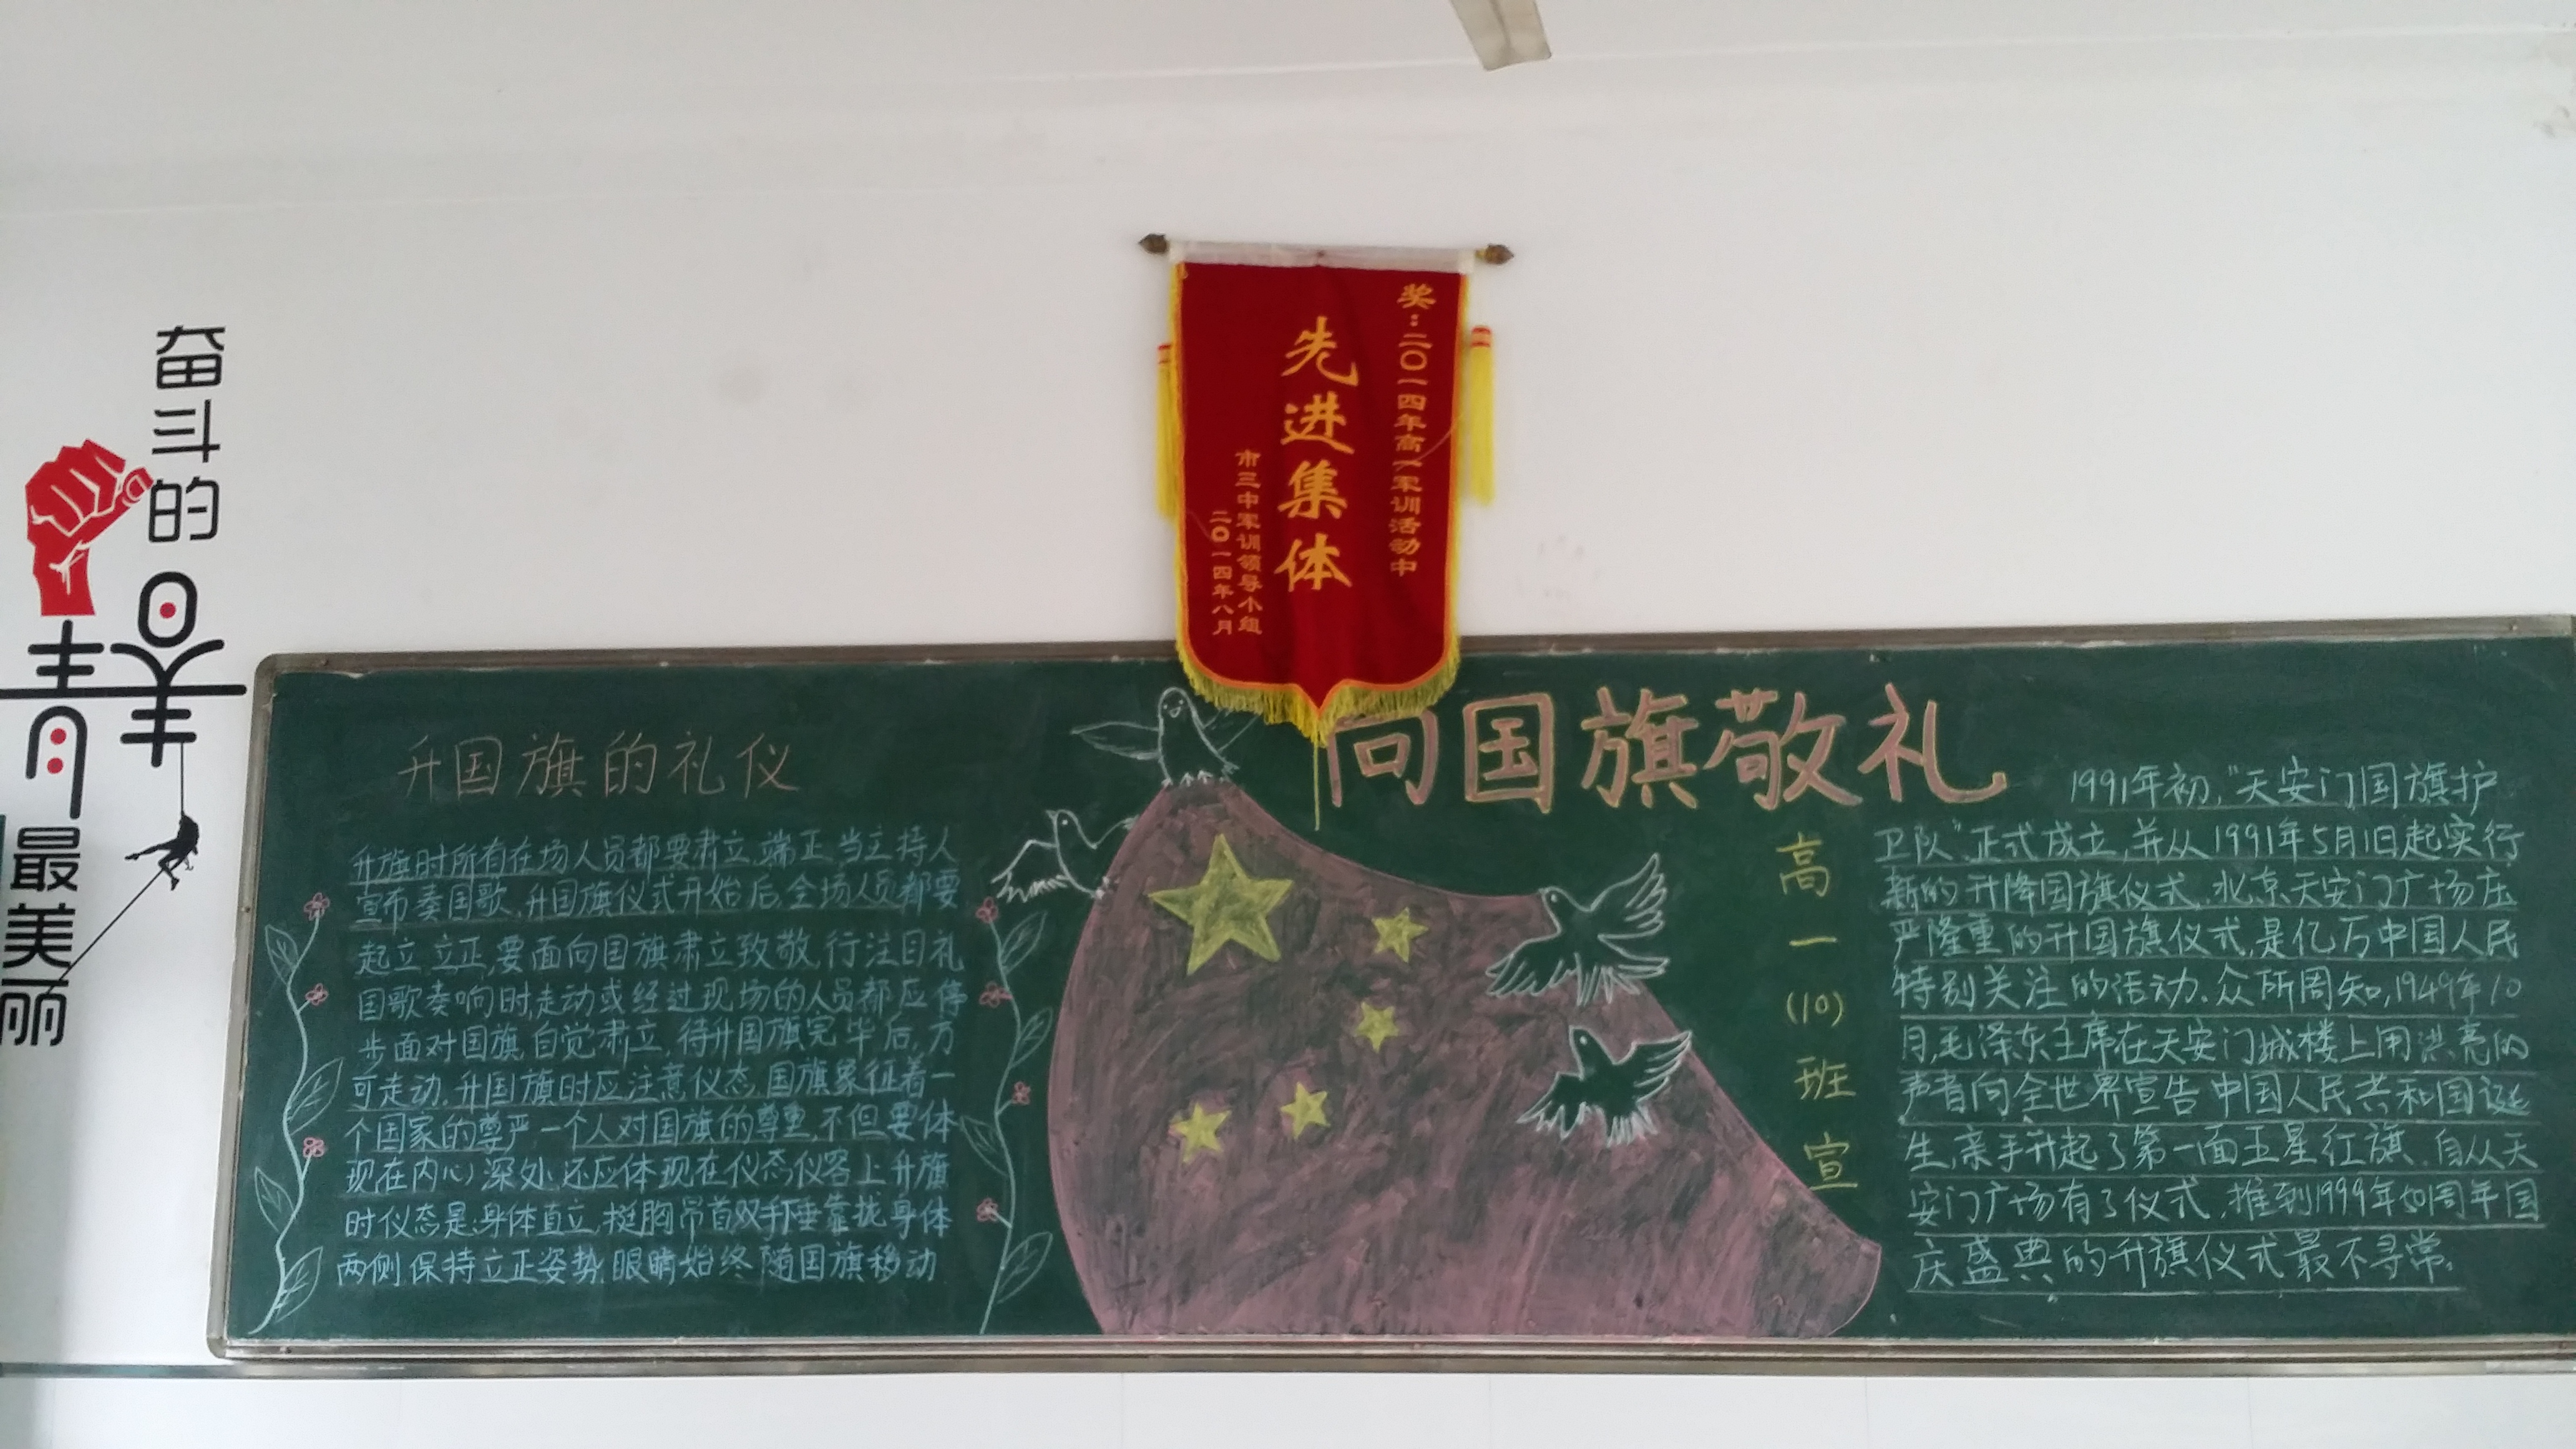 奋斗的
青
春
最美丽
奖：二〇一四年高一军训活动中
先进集体
市三中军训领导小组
二〇一四年八月
向国旗敬礼
高一(10)班宣
升国旗的礼仪
升旗时所有在场人员都要肃立,端正,当主持人
宣布奏国歌,升国旗仪式开始后,全场人员都要
起立,立正,要面向国旗肃立致敬,行注目礼
国歌奏响时,走动或经过现场的人员都应停
步面对国旗,自觉肃立,待升国旗完毕后,方
可走动.升国旗时应注意仪态,国旗象征着一
个国家的尊严一个人对国旗的尊重,不但要体
现在内心深处,还应体现在仪态仪容上升旗
时仪态是:身体直立,挺胸吊首双手下垂靠拢身体
两侧,保持立正姿势,眼睛始终随国旗移动
1991年初,"天安门国旗护
卫队"正式成立,并从1991年5月1日起实行
新的升降国旗仪式.北京天安门广场庄
严隆重的升国旗仪式,是亿万中国人民
特别关注的活动.众所周知,1949年10
月,毛泽东主席在天安门城楼上用洪亮的
声音向全世界宣告中国人民共和国诞
生,亲手升起了第一面五星红旗.自从天
安门广场有了仪式,推到1999年50周年国
庆盛典的升旗仪式最不寻常.